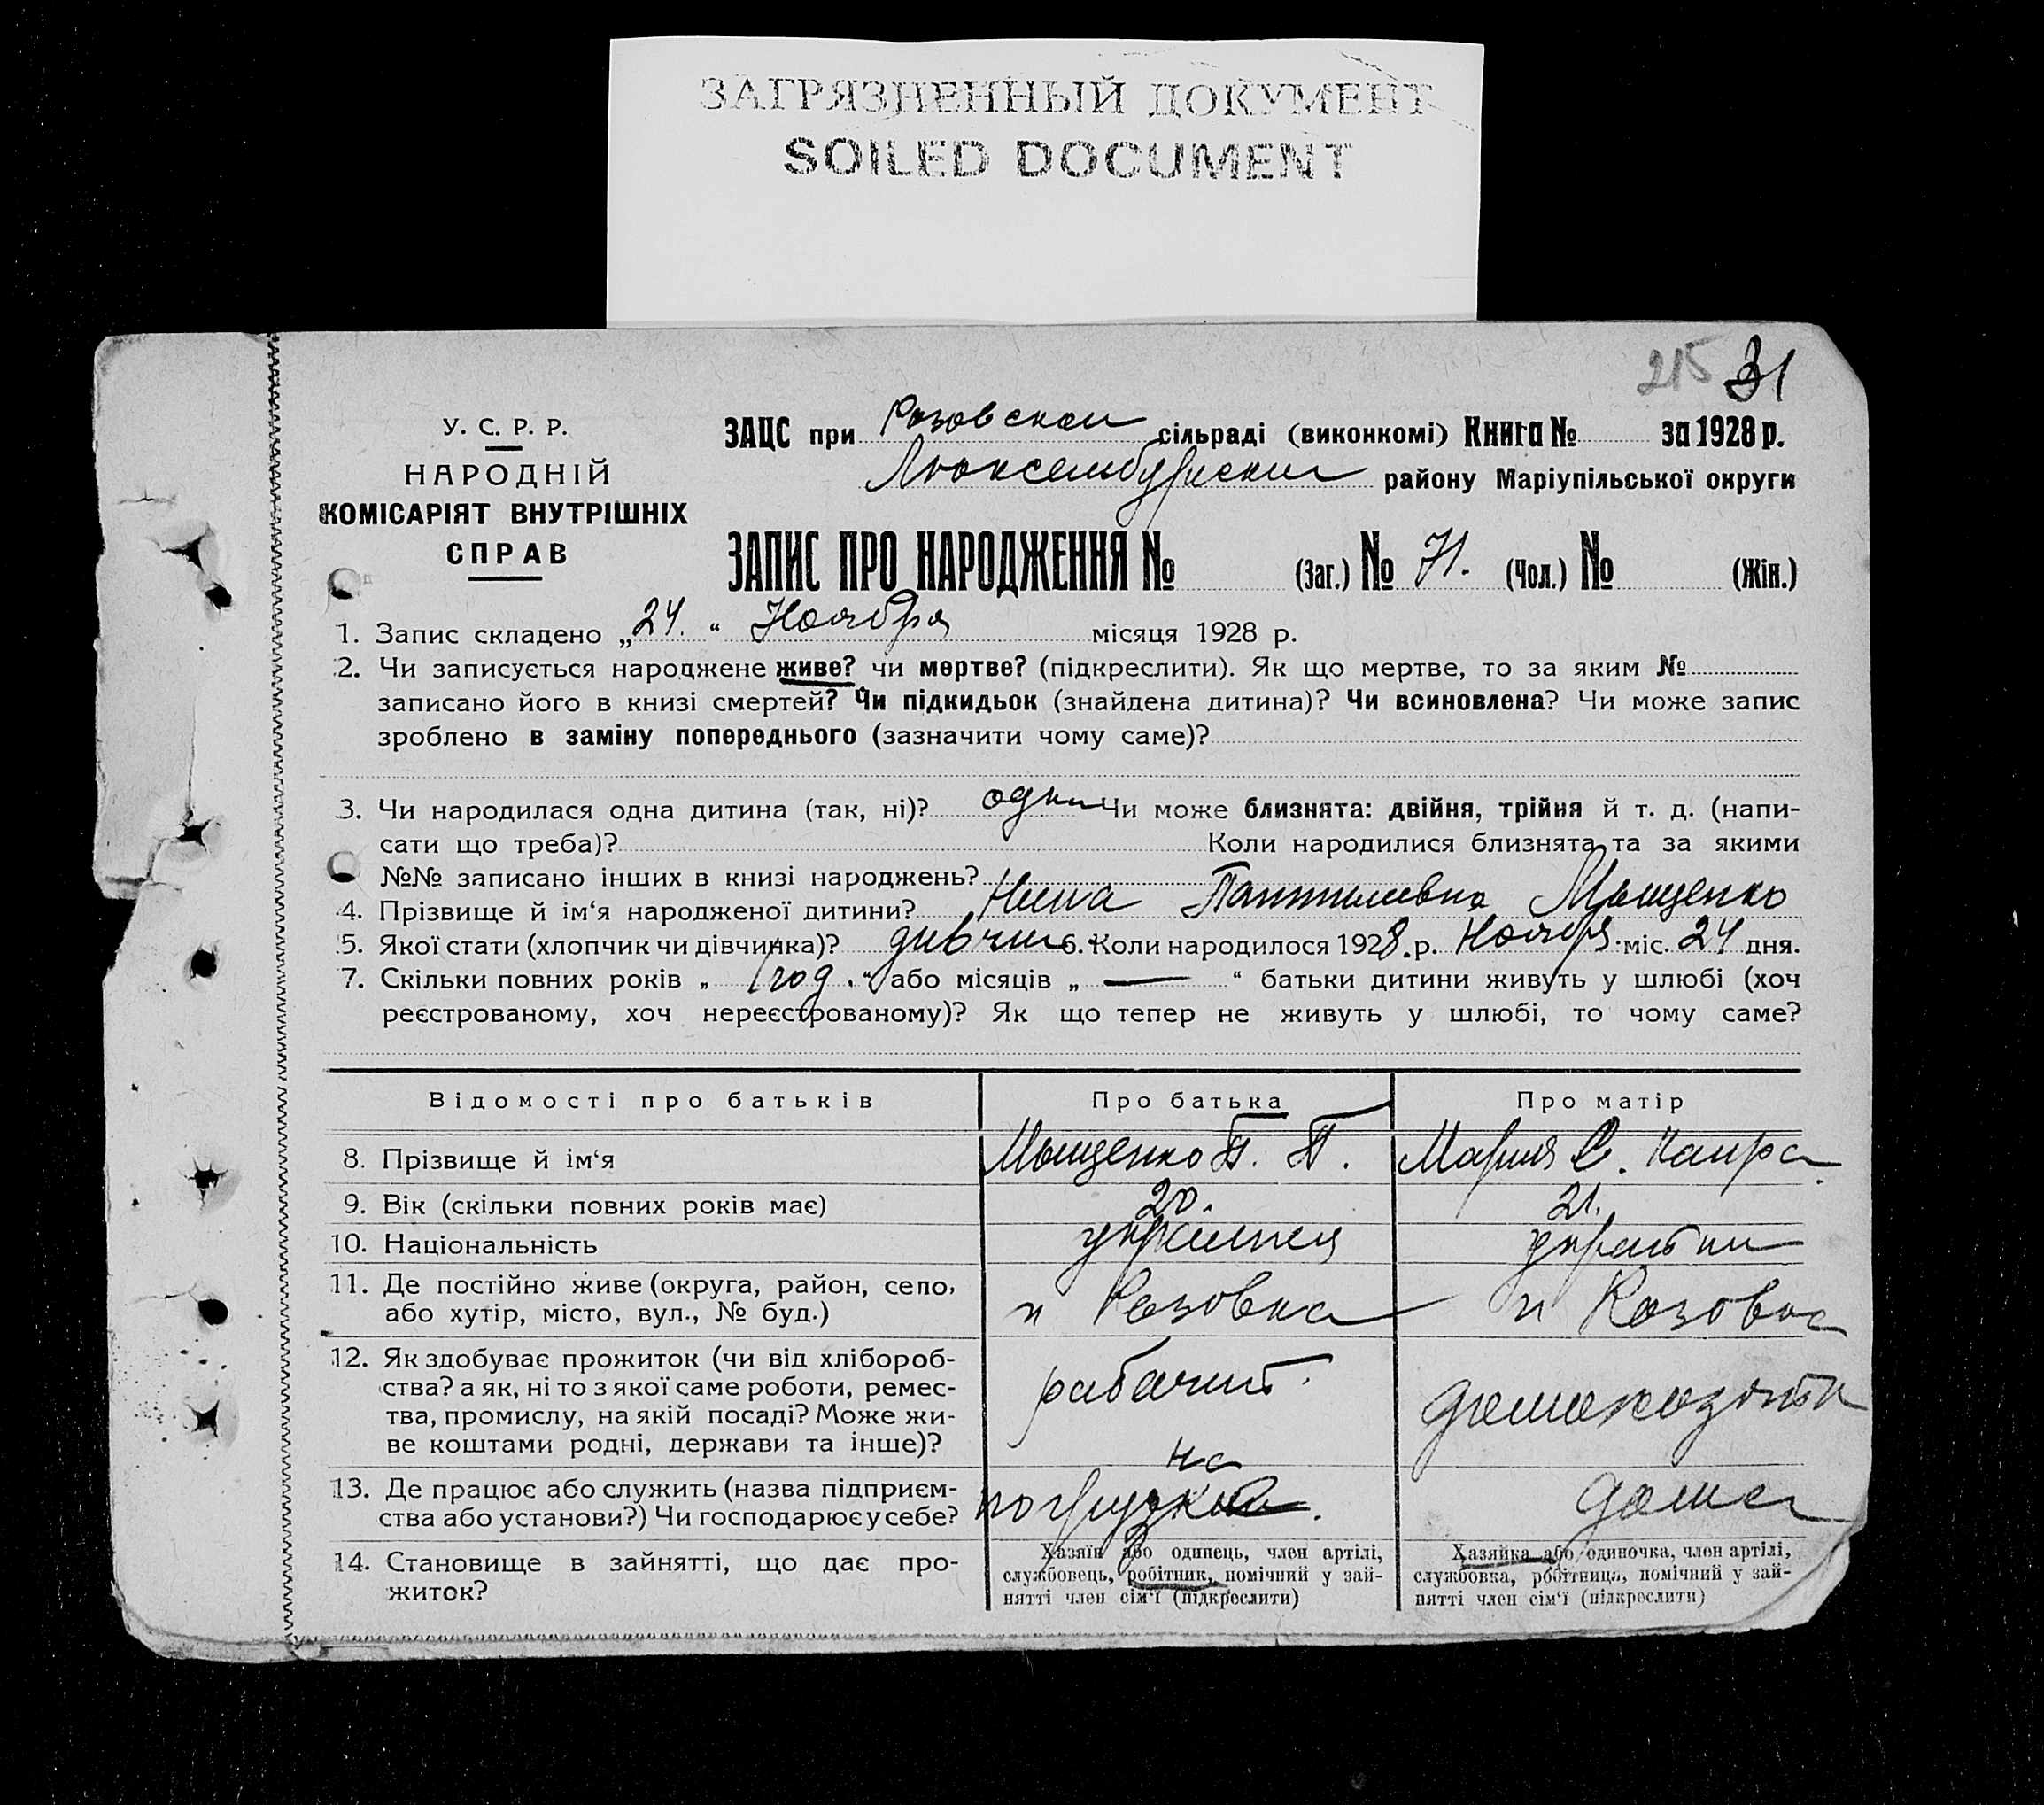 ЗАГРЯЗНЕННЫЙ ДОКУМЕНТ
SOILED DOCUMENT
215 31
У. С. Р. Р.
НАРОДНІЙ
КОМІСАРІЯТ ВНУТРІШНІХ
СПРАВ
ЗАЦС при Розовской сільраді (виконкомі) Книга № за 1928 р.
Люксембургский району Маріупільської округи
ЗАПИС ПРО НАРОДЖЕННЯ № (Заг.) № 71. (Чол.) № (Жін.)
1. Запис складено „24.“ Ноября місяця 1928 р.
2. Чи записується народжене живе? чи мертве? (підкреслити). Як що мертве, то за яким №
записано його в книзі смертей? Чи підкидьок (знайдена дитина)? Чи всиновлена? Чи може запис
зроблено в заміну попереднього (зазначити чому саме)?
3. Чи народилася одна дитина (так, ні)? одна Чи може близнята: двійня, трійня й т. д. (напи-
сати що треба)? Коли народилися близнята та за якими
№№ записано інших в книзі народжень?
4. Прізвище й ім‘я народженої дитини? Нина Мыщенко
5. Якої стати (хлопчик чи дівчинка)? 6. Коли народилося 1928. р. Ноября. міс. 24 дня.
7. Скільки повних років „ 1 год. “ або місяців „ — “ батьки дитини живуть у шлюбі (хоч
реєстрованому, хоч нереєстрованому)? Як що тепер не живуть у шлюбі, то чому саме?
Відомості про батьків Про батька Про матір
8. Прізвище й ім‘я Мыщенко П. П. Мария С.
9. Вік (скільки повних років має) 20. 21.
10. Національність
11. Де постійно живе (округа, район, село,
або хутір, місто, вул., № буд.) п Розовка п Розовка
12. Як здобуває прожиток (чи від хлібороб-
ства? а як, ні то з якої саме роботи, ремес-
тва, промислу, на якій посаді? Може жи-
ве коштами родні, держави та інше)? рабочий.
13. Де працює або служить (назва підприєм-
ства або установи?) Чи господарює у себе? на погрузке. дома
14. Становище в зайнятті, що дає про-
житок?
Хазяїн або одинець, член артілі,
службовець, робітник, помічний у зай-
нятті член сім‘ї (підкреслити)
Хазяйка або одиночка, член артілі,
службовка, робітниця, помічний у зай-
нятті член сім‘ї (підкреслити)